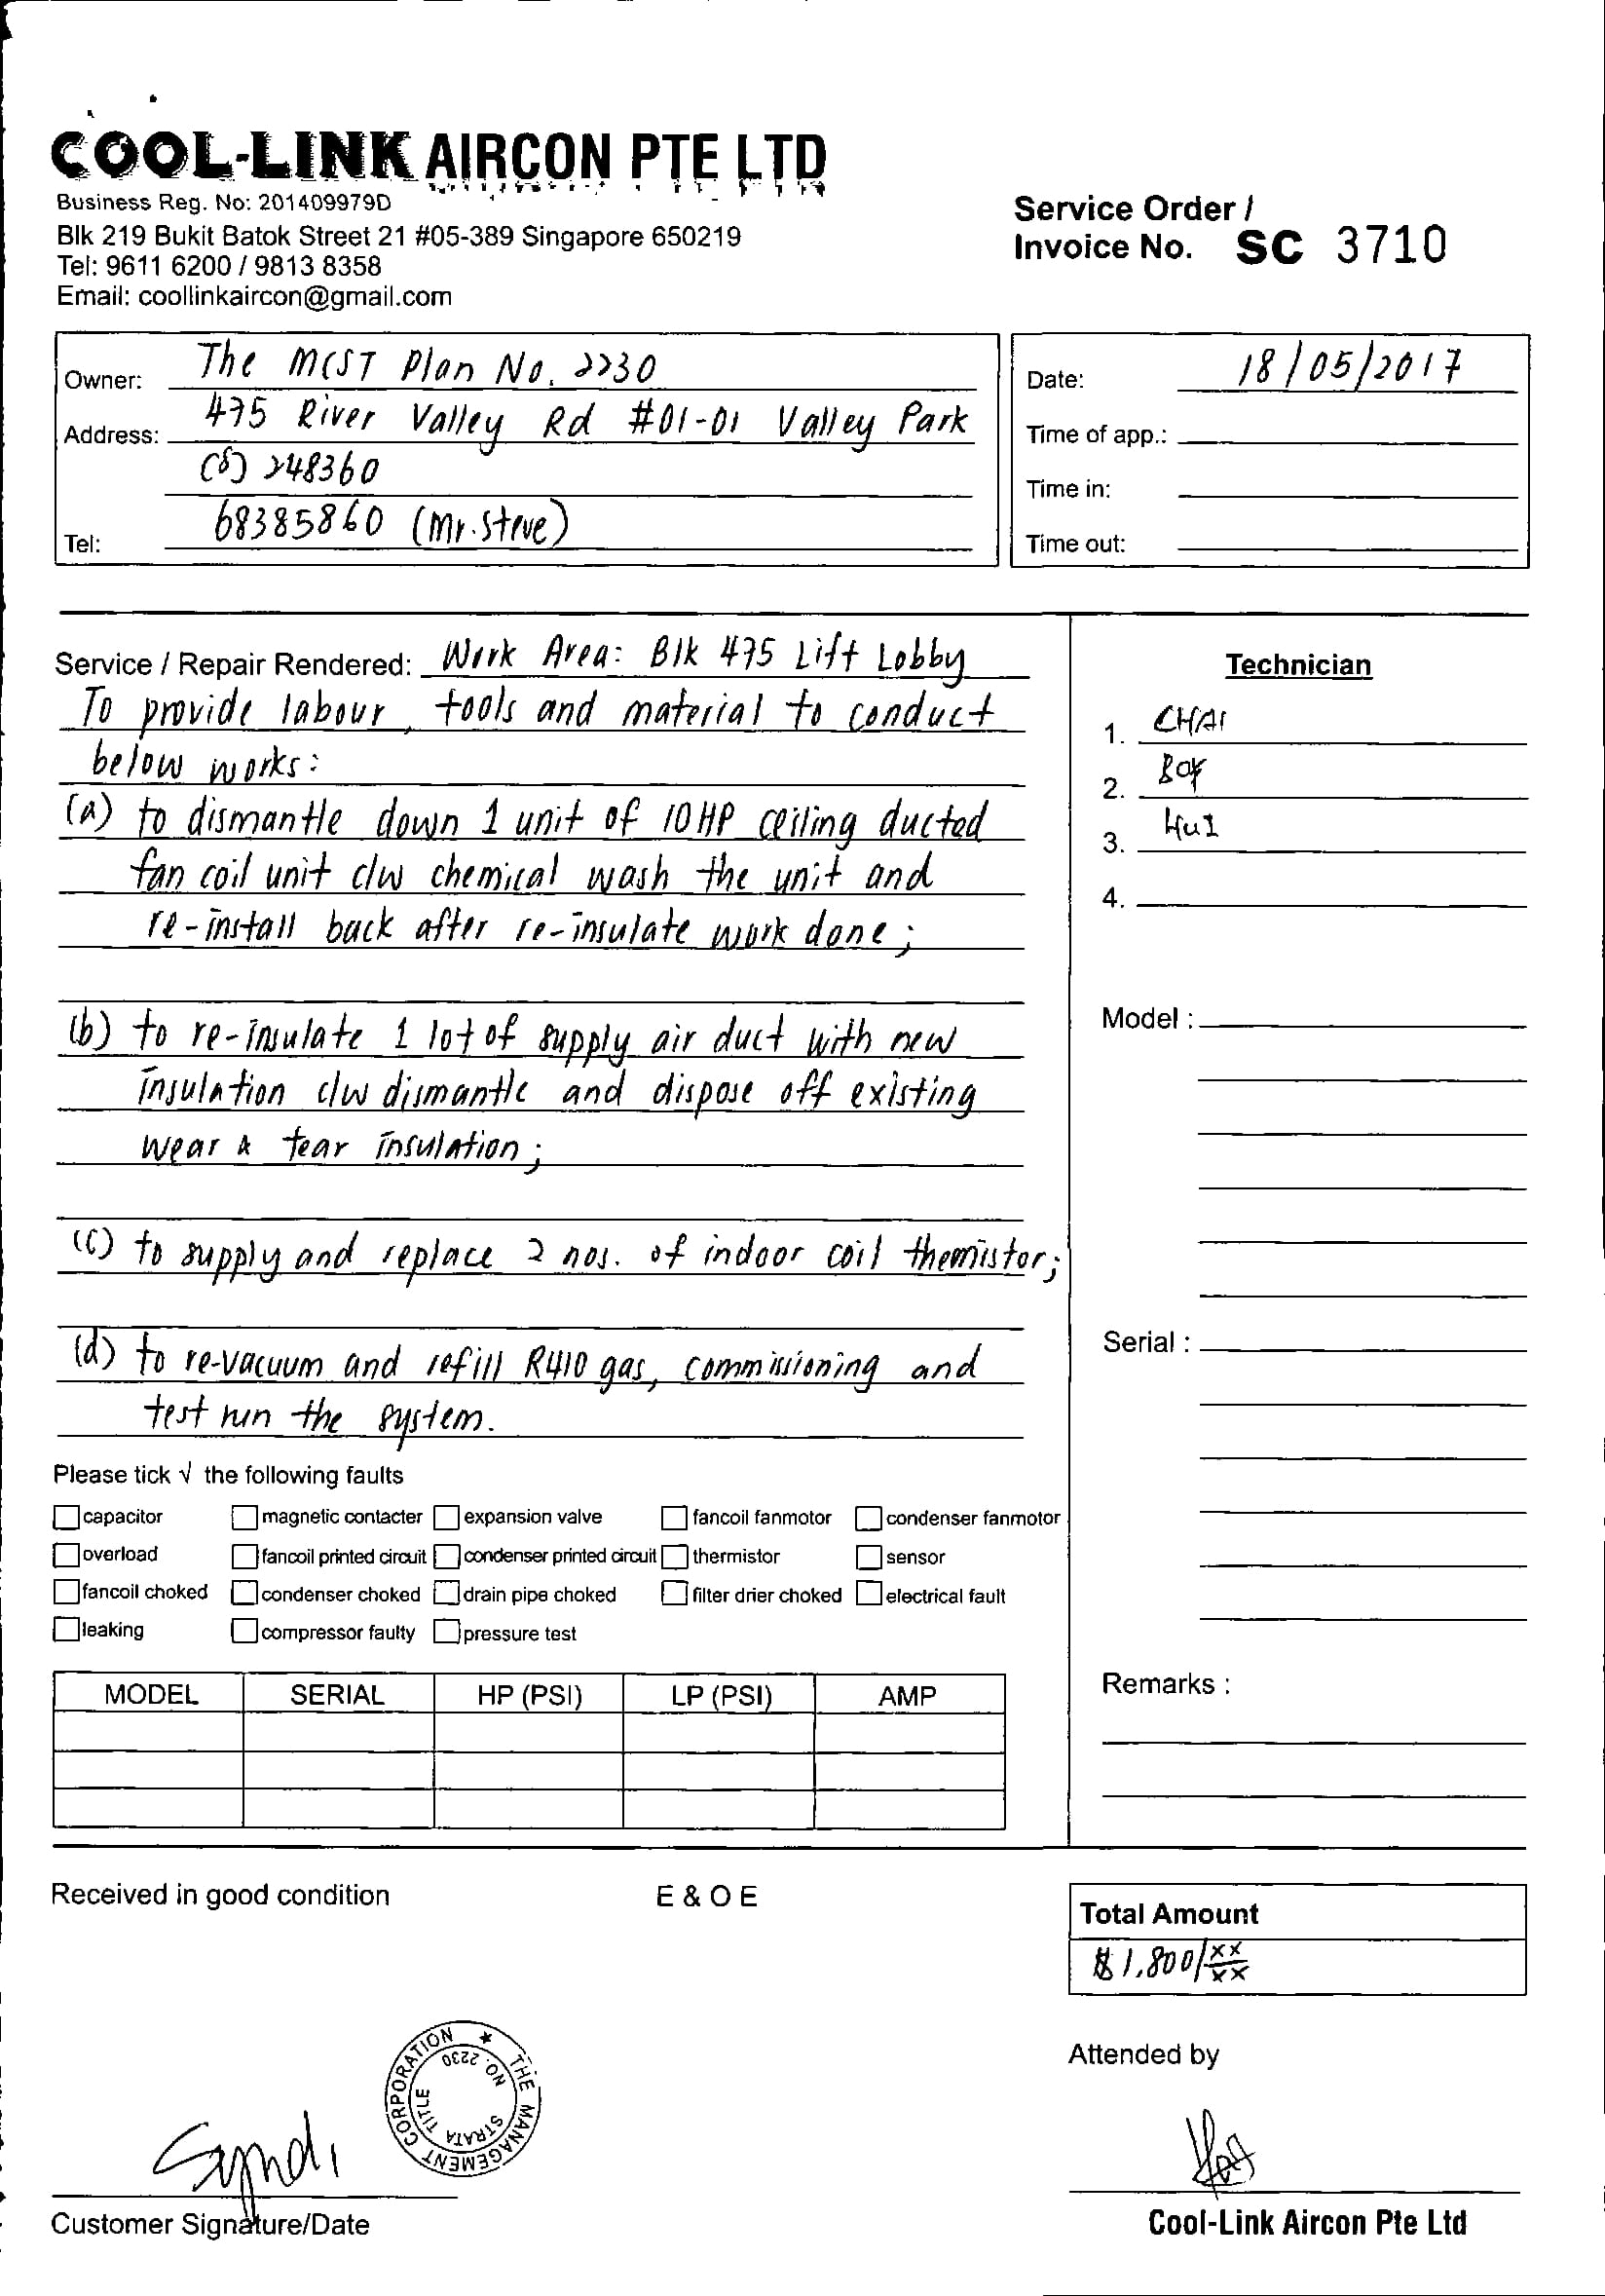 COOL-LINK AIRCON PTE LTD
Business Reg. No: 201409979D
Blk 219 Bukit Batok Street 21 #05-389 Singapore 650219
Tel: 9611 6200 / 9813 8358
Email: coollinkaircon@gmail.com
Service Order /
Invoice No. SC 3710
Owner: The MCST Plan No. 2230
Address: 475 River Valley Rd #01-01 Valley Park
(S) 248360
Tel: 68385860 (Mr. Steve)
Date: 18/05/2017
Time of app.:
Time in:
Time out:
Service / Repair Rendered: Work Area: Blk 475 Lift Lobby
To provide labour, tools and material to conduct
below works:
(a) to dismantle down 1 unit of 10HP ceiling ducted
fan coil unit c/w chemical wash the unit and
re-install back after re-insulate work done;
(b) to re-insulate 1 lot of supply air duct with new
insulation c/w dismantle and dispose off existing
wear & tear insulation;
(c) to supply and replace 2 nos. of indoor coil themistor;
(d) to re-vacuum and refill R410 gas, commissioning and
test run the system.
Technician
1. CHAI
2.
3. Hui
4.
Model :
Serial :
Remarks :
Please tick √ the following faults
capacitor magnetic contacter expansion valve fancoil fanmotor condenser fanmotor
overload fancoil printed circuit condenser printed circuit thermistor sensor
fancoil choked condenser choked drain pipe choked filter drier choked electrical fault
leaking compressor faulty pressure test
MODEL SERIAL HP (PSI) LP (PSI) AMP
Received in good condition E & O E
Total Amount
$1,800/xx/xx
THE MANAGEMENT CORPORATION
STRATA TITLE NO. 2230
Attended by
Customer Signature/Date
Cool-Link Aircon Pte Ltd